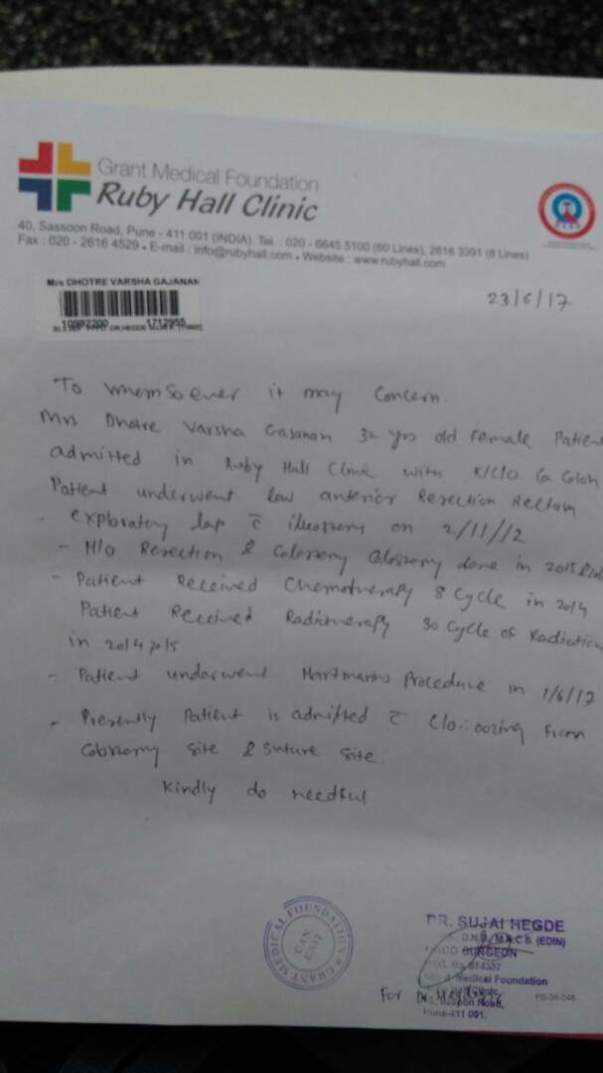 Grant Medical Foundation
Ruby Hall Clinic
40, Sassoon Road, Pune - 411 001 (INDIA). Tel. : 020 - 6645 5100 (60 Lines), 2616 3391 (8 Lines)
Fax : 020 - 2616 4529 • E-mail : info@rubyhall.com • Website : www.rubyhall.com
Mrs DHOTRE VARSHA GAJANAN
1712955
23/6/17
To whomsoever it may concern.
Mrs Dhotre Varsha Gajanan yrs old Female Patient
admitted in Ruby Hall Clinic with K/C/O Ca Colon
Patient underwent low anterior Resection Rectum
exploratory lap c̄ illeostomy on 2/11/12
- H/O Resection & Colostomy done in 2015
- Patient Received Chemotherapy 8 cycle in 2014
Patient Received Radiotherapy 30 cycle of Radiation
in 2014 2015
- Patient underwent Hartmanns Procedure in 1/6/17
- Presently Patient is admitted c̄ C/o:- oozing from
Colostomy site & suture site.
Kindly do needful
GRANT MEDICAL FOUNDATION
DR. SUJAI HEGDE
(EDIN)
SURGEON
Medical Foundation
For Dr.
Road,
411 001.